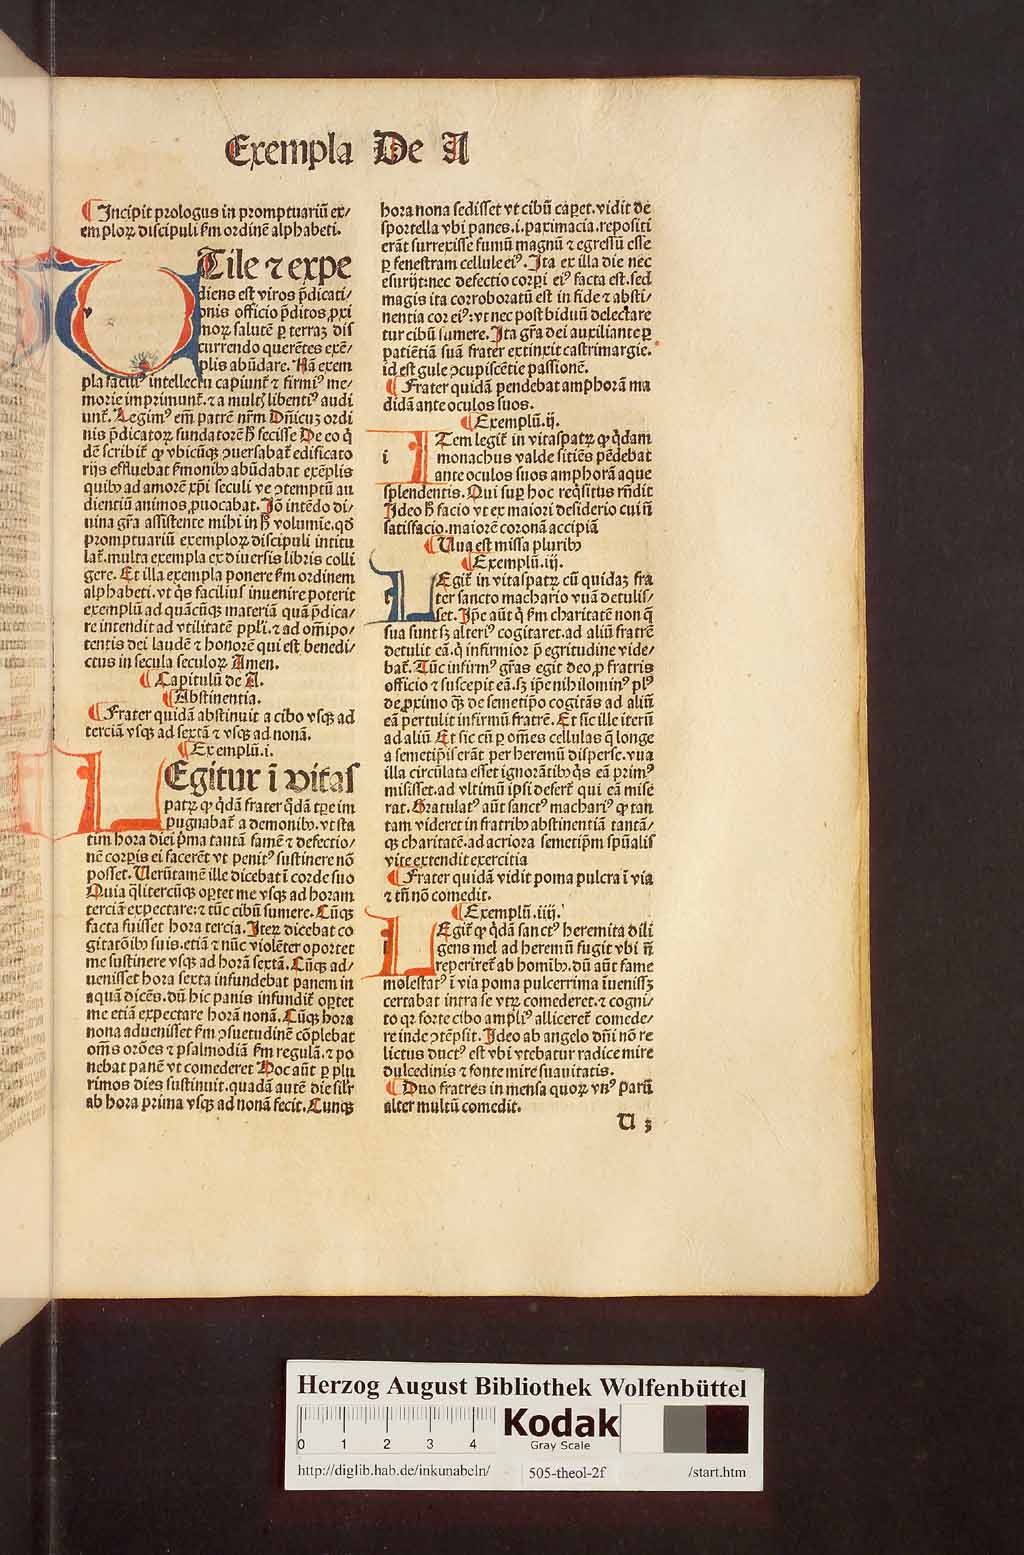 Exempla De A
¶ Incipit prologus in promptuariū ex/
emploꝝ discipuli ẜm ordinē alphabeti.
UTile ⁊ expe
diens est viros p̄dicati/
onis officio p̄ditos ꝓxi
moꝝ salutē ꝑ terraꝫ dis
currendo querētes exē/
plis abūdare. Nā exem
pla faciliꝰ intellectu capiunt̄ ⁊ firmiꝰ me/
morie imprimunt̄. ⁊ a multꝭ libentiꝰ audi
unt̄. Legimꝰ em̄ patrē nr̄m Dn̄icuꝫ ordi
nis p̄dicatoꝝ fundatorē h̄ fecisse De eo q̄
dē scribit̄ ꝙ vbicūqꝫ ꝯuersabat̄ edificato
rijs effluebat ẜmonibꝰ abūdabat exēplis
quibꝰ ad amorē xp̄i seculi ve ꝯtemptū au
dientiū animos ꝓuocabat. Iō intēdo di/
uina gr̄a assistente mihi in h̄ volumie. qd̄
promptuariū exemploꝝ discipuli intitu
lat̄. multa exempla ex diuersis libris colli
gere. Et illa exempla ponere ẜm ordinem
alphabeti. vt q̇s facilius inuenire poterit
exemplū ad quācūqꝫ materiā quā p̄dica/
re intendit ad vtilitatē ppl̄i. ⁊ ad om̄ipo/
tentis dei laudē ⁊ honorē qui est benedi/
ctus in secula seculoꝝ Amen.
¶ Capitulū de A.
¶ Abstinentia.
¶ Frater quidā abstinuit a cibo vsqꝫ ad
terciā vsqꝫ ad sextā ⁊ vsqꝫ ad nonā.
¶ Exemplū. i.
LEgitur ī vitas
patꝝ ꝙ q̇dā frater q̇dā tꝑe im
pugnabat̄ a demonibꝰ. vt sta
tim hora diei p̄ma tantā famē ⁊ defectio/
nē corꝑis ei facerēt vt penitꝰ sustinere nō
posset. Uerūtamē ille dicebat ī corde suo
Quia q̄litercūqꝫ oꝑtet me vsqꝫ ad horam
terciā expectare: ⁊ tūc cibū sumere. Cūqꝫ
facta fuisset hora tercia. Iteꝝ dicebat co
gitatōibꝰ suis. etiā ⁊ nūc violēter oportet
me sustinere vsqꝫ ad horā sextā. Cūqꝫ ad/
uenisset hora sexta infundebat panem in
aquā dicēs. dū hic panis infundit̄ oꝑtet
me etiā expectare horā nonā. Cūqꝫ hora
nona aduenisset ẜm ꝯsuetudinē cōplebat
om̄s orōes ⁊ psalmodiā ẜm regulā. ⁊ po
nebat panē vt comederet Hoc aūt ꝑ plu
rimos dies sustinuit. quadā autē die sil̄r
ab hora prima vsqꝫ ad nonā fecit. Cunqꝫ
hora nona sedisset vt cibū caꝑet. vidit de
sportella vbi panes .i. paximacia. repositi
erāt surrexisse fumū magnū ⁊ egressū esse
ꝑ fenestram cellule eiꝰ. Ita ex illa die nec
esurijt: nec defectio corꝑi eiꝰ facta est. sed
magis ita corroboratū est in fide ⁊ absti/
nentia cor eiꝰ: vt nec post biduū delectare
tur cibū sumere. Ita gr̄a dei auxiliante ꝑ
patiētiā suā frater extinxit castrimargiē.
id est gule ꝯcupiscētie passionē.
¶ Frater quidā pendebat amphorā ma
didā ante oculos suos.
¶ Exemplū. ij.
i
ITem legit̄ in vitaspatꝝ ꝙ q̇dam
monachus valde sitiēs pēdebat
ante oculos suos amphorā aque
splendentis. Qui suꝑ hoc req̇situs rn̄dit
Ideo h̄ facio vt ex maiori desiderio cui n̄
satisfacio. maiorē coronā accipiā
¶ Uua est missa pluribꝰ
¶ Exemplū. iij.
LEgit̄ in vitaspatꝝ cū quidaꝫ fra
ter sancto machario vuā detulis/
set. Ip̄e aūt q̇ ẜm charitatē non q̄
sua sunt sꝫ alteriꝰ cogitaret. ad aliū fratrē
detulit eā. q̇ infirmior p̄ egritudine vide/
bat̄. Tūc infirmꝰ gr̄as egit deo ꝓ fratris
officio ⁊ suscepit eā. sꝫ ip̄e nihilominꝰ plꝰ
de ꝓximo qꝫ de semetip̄o cogitās ad aliū
eā pertulit infirmū fratrē. Et sic ille iterū
ad aliū Et sic cū ꝑ om̄es cellulas q̄ longe
a semetip̄is erāt per heremū disperse. vua
illa circūlata esset ignorātibꝰ q̇s eā primꝰ
misisset. ad vltimū ip̄si defert̄ qui eā mise
rat. Gratulatꝰ aūt sanctꝰ machariꝰ ꝙ tan
tam videret in fratribꝰ abstinentiā tantā/
qꝫ charitatē. ad acriora semetip̄m sp̄ualis
vite extendit exercitia
¶ Frater quidā vidit poma pulcra ī via
⁊ tn̄ nō comedit.
¶ Exemplū. iiij.
l
LEgit̄ ꝙ q̇dā sanctꝰ heremita dili
gens mel ad heremū fugit vbi n̄
reperiret̄ ab homībꝰ. dū aūt fame
molestatꝰ ī via poma pulcerrima īuenissꝫ
certabat intra se vtꝝ comederet. ⁊ cogni/
to qꝛ forte cibo ampliꝰ alliceret̄ comede/
re inde ꝯtēpsit. Ideo ab angelo dn̄i nō re
lictus ductꝰ est vbi vtebatur radice mire
dulcedinis ⁊ fonte mire suauitatis.
¶ Duo fratres in mensa quoꝝ vnꝰ parū
alter multū comedit.
U 3
Herzog August Bibliothek Wolfenbüttel
0 1 2 3 4
Kodak
Gray Scale
http://diglib.hab.de/inkunabeln/ 505-theol-2f /start.htm